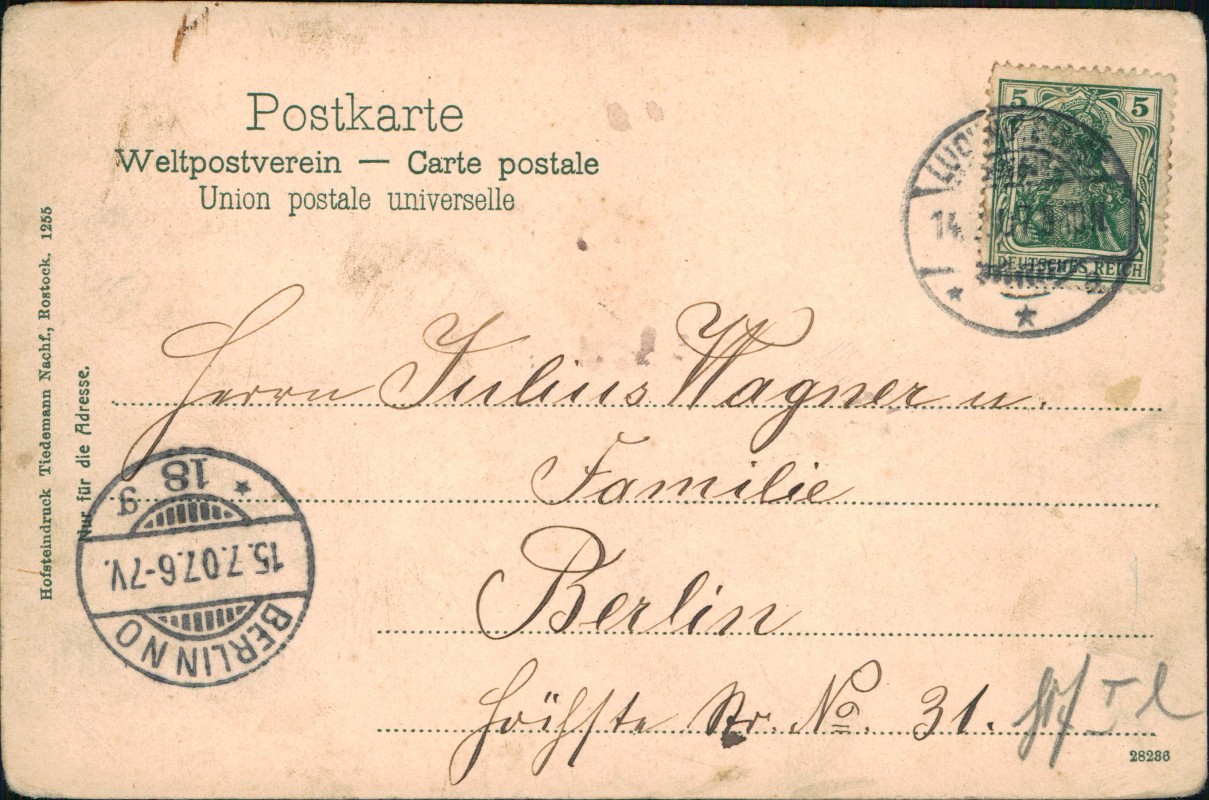 Postkarte
Weltpostverein — Carte postale
Union postale universelle
5 5
DEUTSCHES REICH
Hofsteindruck Tiedemann Nachf., Rostock. 1255
Nur für die Adresse.
Herrn Julius Wagner u.
Familie
Berlin
Höchste Str. No. 31.
BERLIN NO
15.7.07.6-7V.
* 18 g
28286